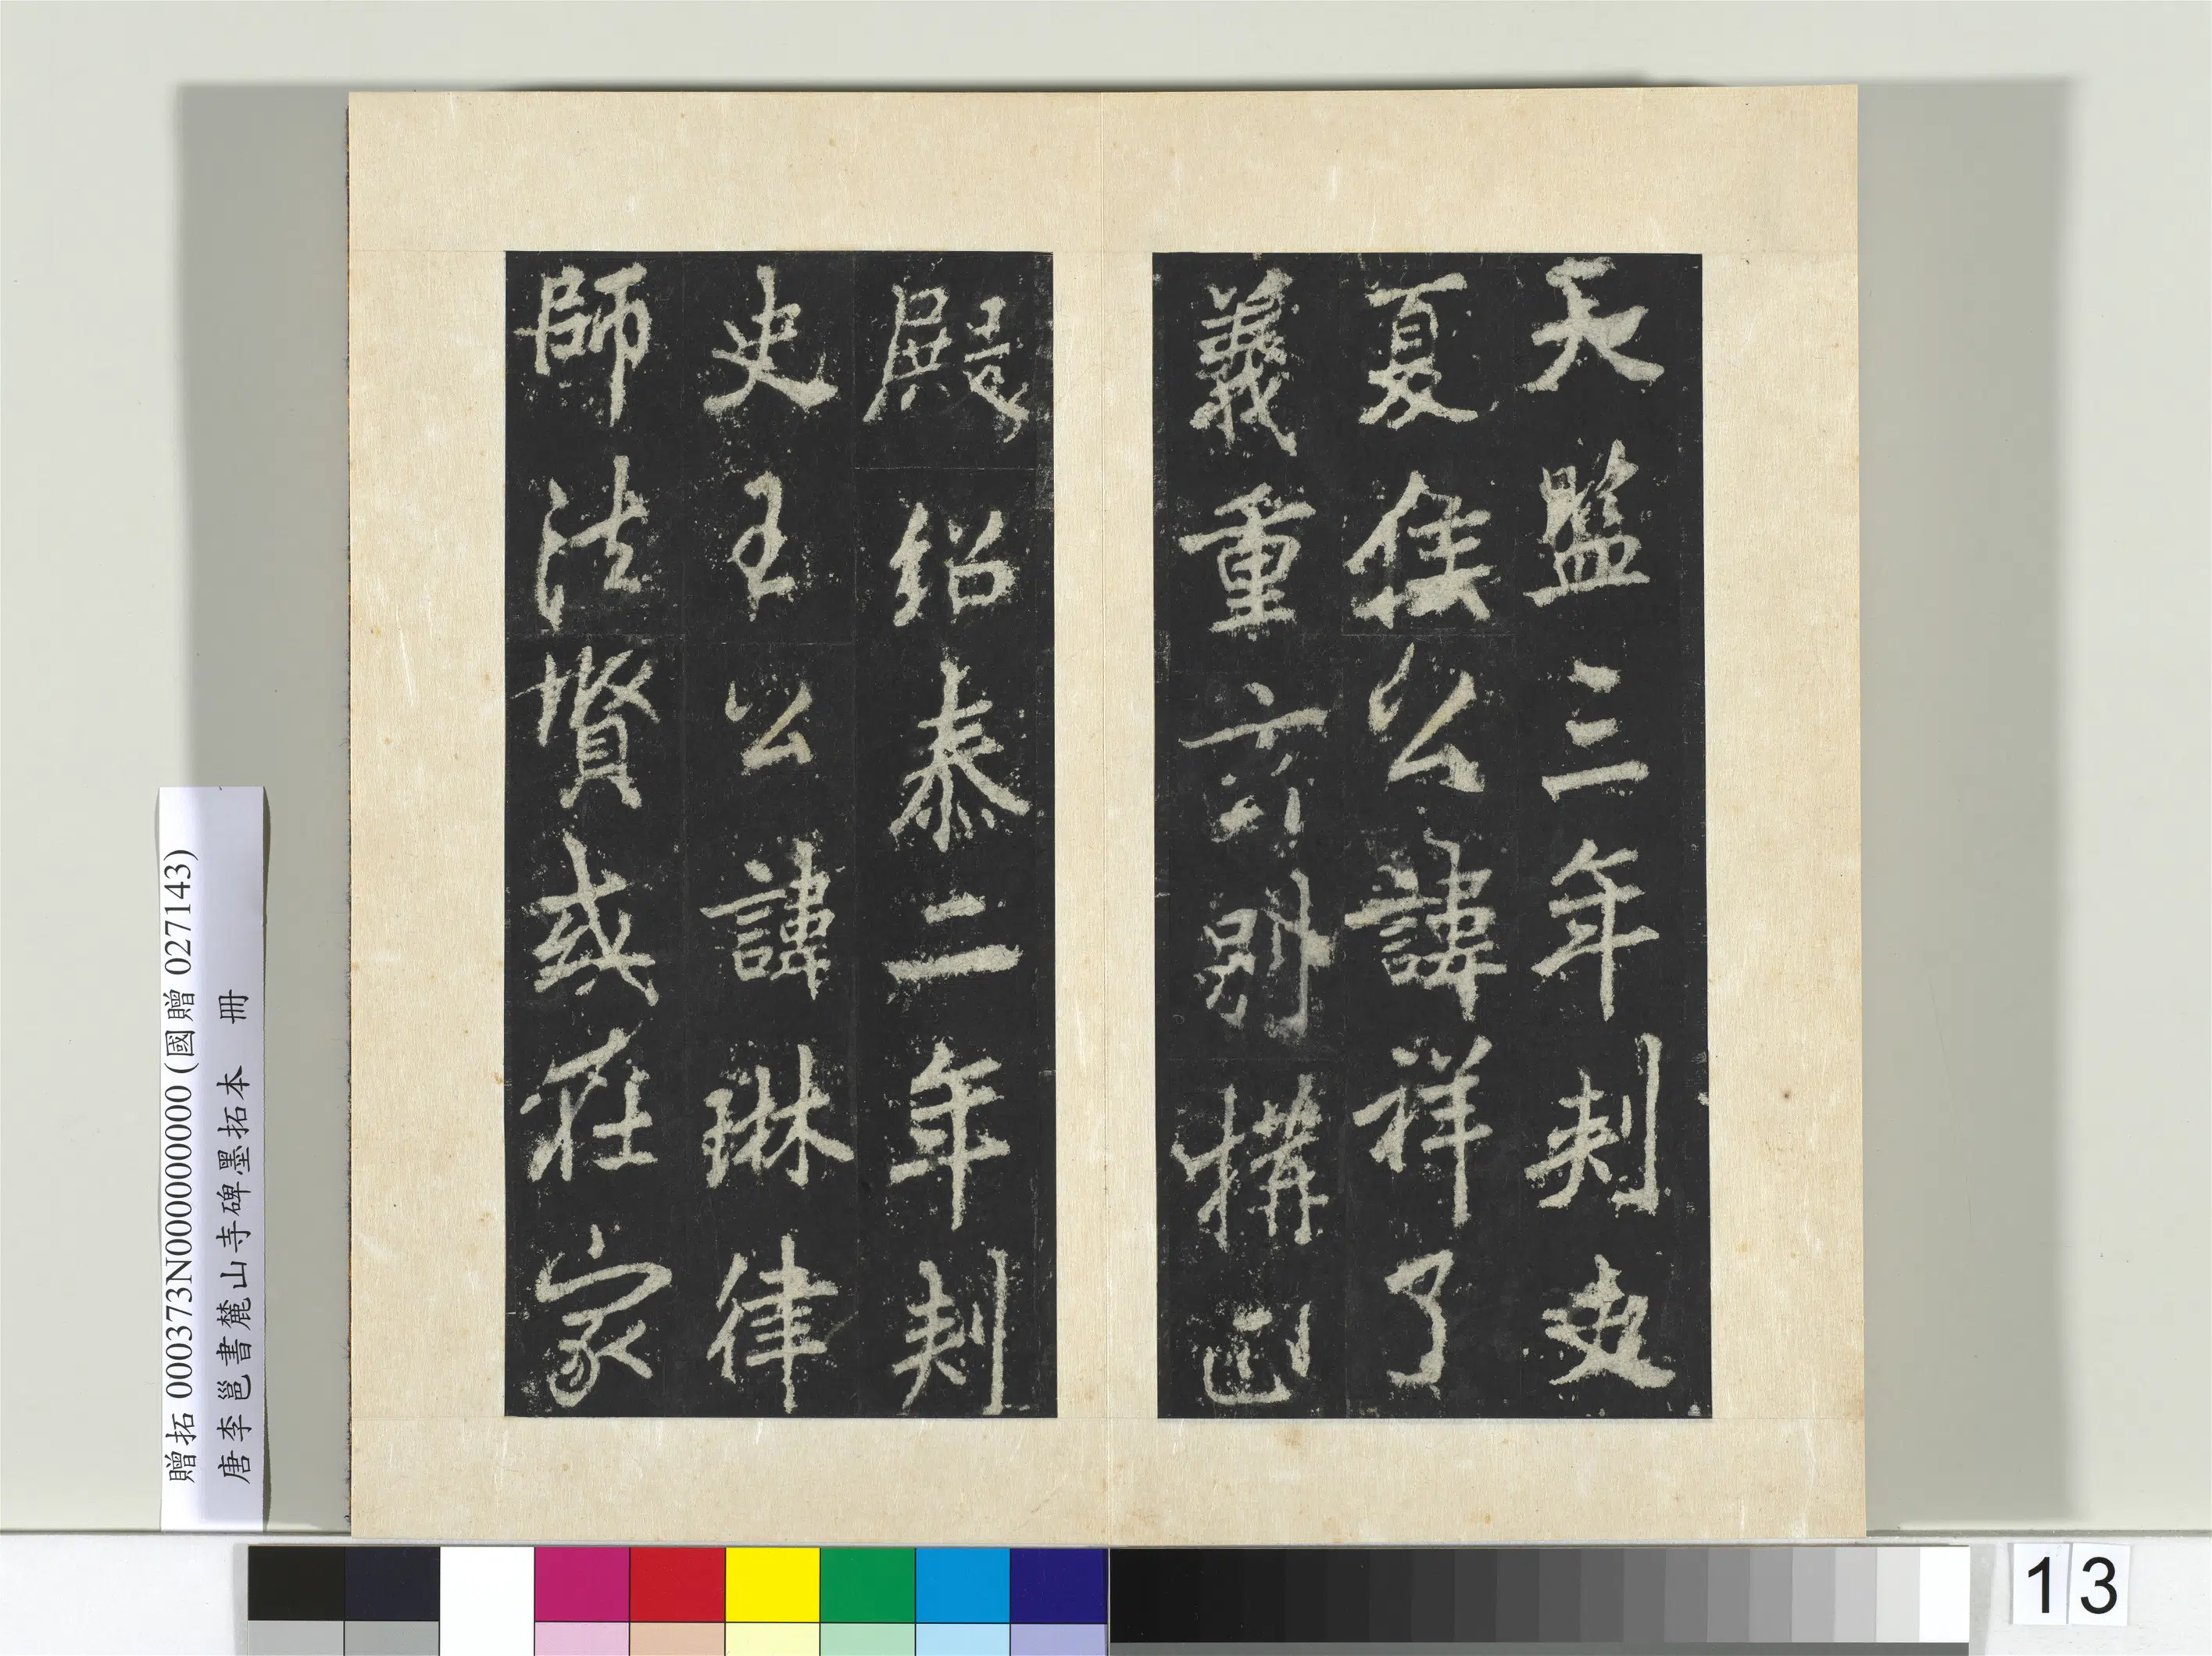 天監三年刺史
夏侯公諱祥了
義重玄別構正
殿紹泰二年刺
史王公諱琳律
師法賢或在家
贈拓 000373N000000000 (國贈 027143)
唐李邕書麓山寺碑墨拓本 冊
13